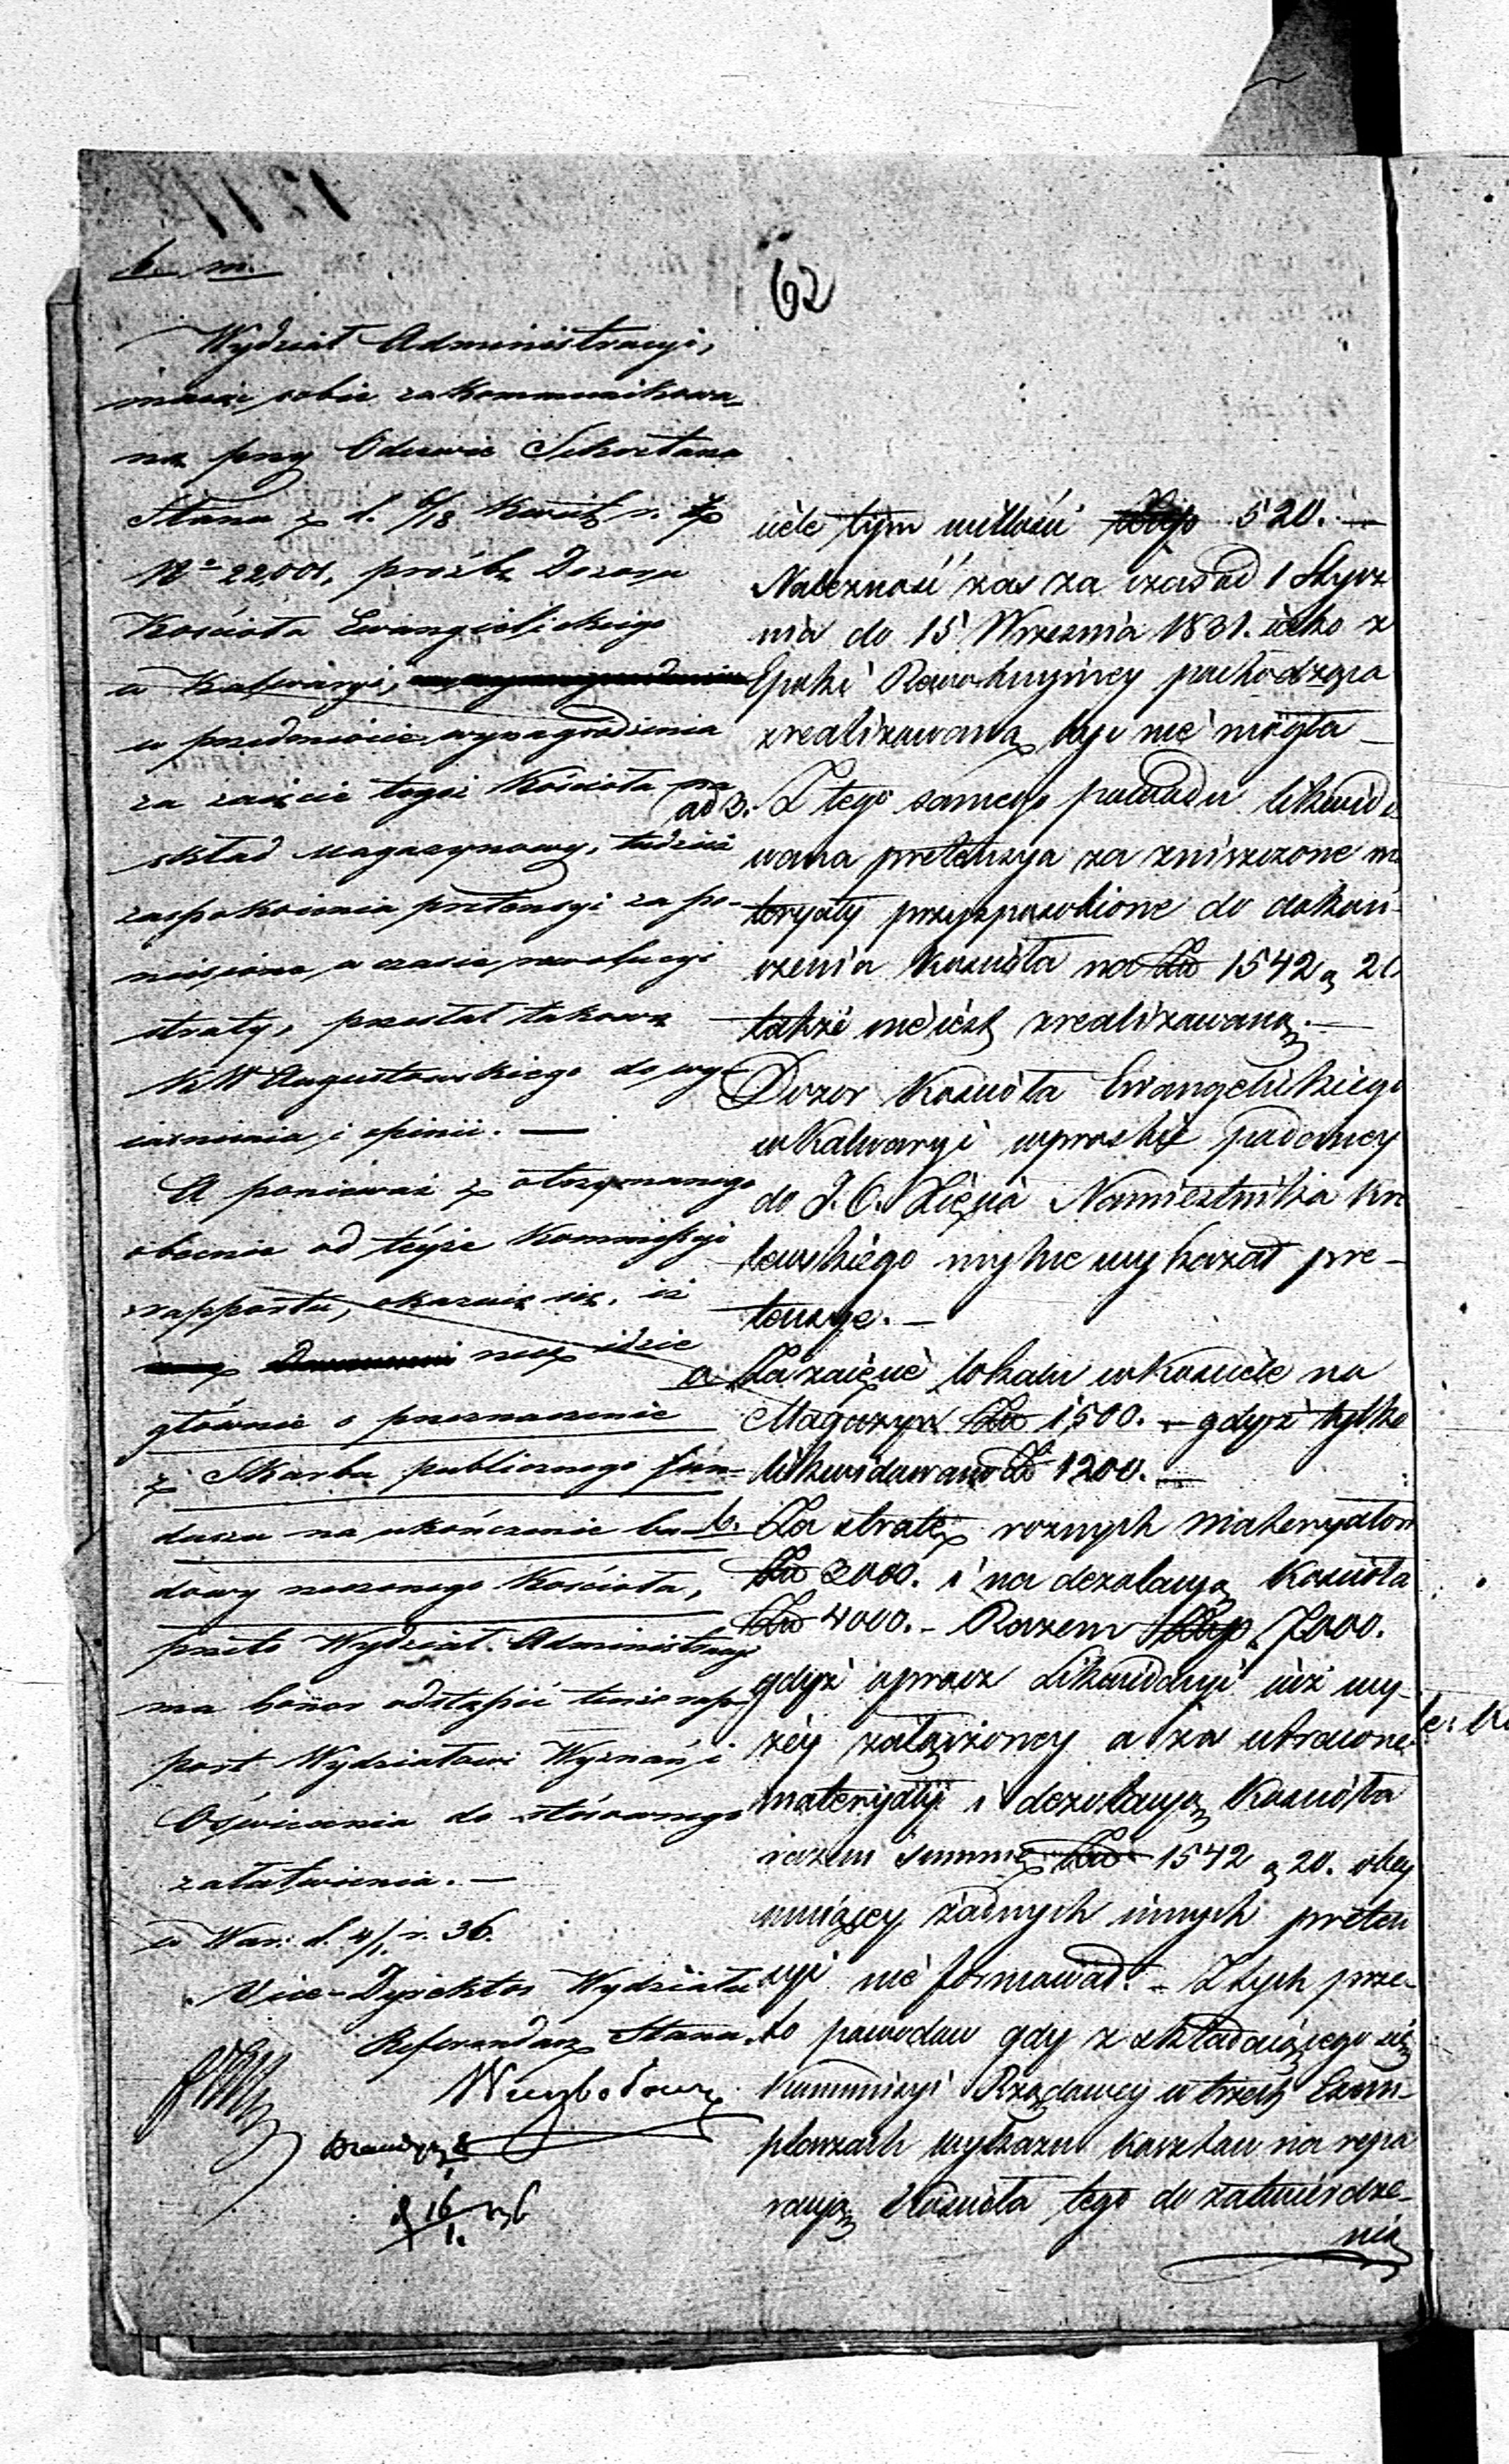 b. m.
62
Wydział Administracyi,
mając sobie zakommunikowa-
ną przy Odezwie Sekretarza
Stanu z d. 6/18 Kwiet. r. z.
No 22,001, prośbę Dozoru
Kościoła Ewangielickiego
w Kalwaryi,
w przedmiocie wynagrodzenia
za zajęcie tegoż Kościoła na
skład magazynowy, tudzież
zaspokojenia pretensyi za po-
niesione w czasie rewolucyi
straty, przesłał takową
K W Augustowskiego do wy-
jaśnienia i opinii. —
A ponieważ z otrzymanego
obecnie od tejże Kommissyi
rapportu, okazuje się, iż
rzecz idzie
głównie o przeznaczenie
z Skarbu publicznego fun-
duszu na ukończenie bu-
dowy rzeczonego Kościoła,
przeto Wydział Administracyi
ma honor odstąpić tenże rap-
port Wydziałowi Wyznań i
Oświecenia do stosownego
załatwienia. —
w War. d. 4/1 r. 36.
Vice-Dyrektor Wydziału
Referendarz Stanu
d 16/1. 36
ciele tym mieścił 520. —
Należność zas za czas od 1 Stycz
nia do 15 Wrzesnia 1831. iako z
Epoki Rewolucyiney pochodząca
zrealizowaną byc nie mogła —
ad 3. Z tego samego powodu likwido
wana pretensya za zniszczone ma
teryały przysposobione do dokoń-
czenia Kościoła na Złp 1542 g 20
także nie iest zrealizowaną. —
Dozor Kościoła Ewangelickiego
w Kalwaryi w prosbie podaney
do J. O. Xięcia Namiestnika Kró
lewskiego mylnie wykazał pre-
tensye. —
a. Za zaięcie lokalu w Kościele na
Magazyn Złp 1,500. — gdyż tylko
likwidowano Zł 1200. —
b. Za stratę roznych materyałow
Złp 2000. i na dezolacyą Kościoła
Złp 4000. — Razem Złp. 7000.
gdyż oprocz Likwidacyi iuż wy-
żey załączoney a za utracone
materyały i dezolacyą Kościoła
razem summę Złp 1542 g 20. obey
muiącey żadnych innych preten
syi nie formował. — Z tych prze-
to powodow gdy z składaiącego się
Kommissyi Rządowey w trzech Exem-
plarzach wykazu kosztow na repa
racyą Kościoła tego do zatwierdze-
nia